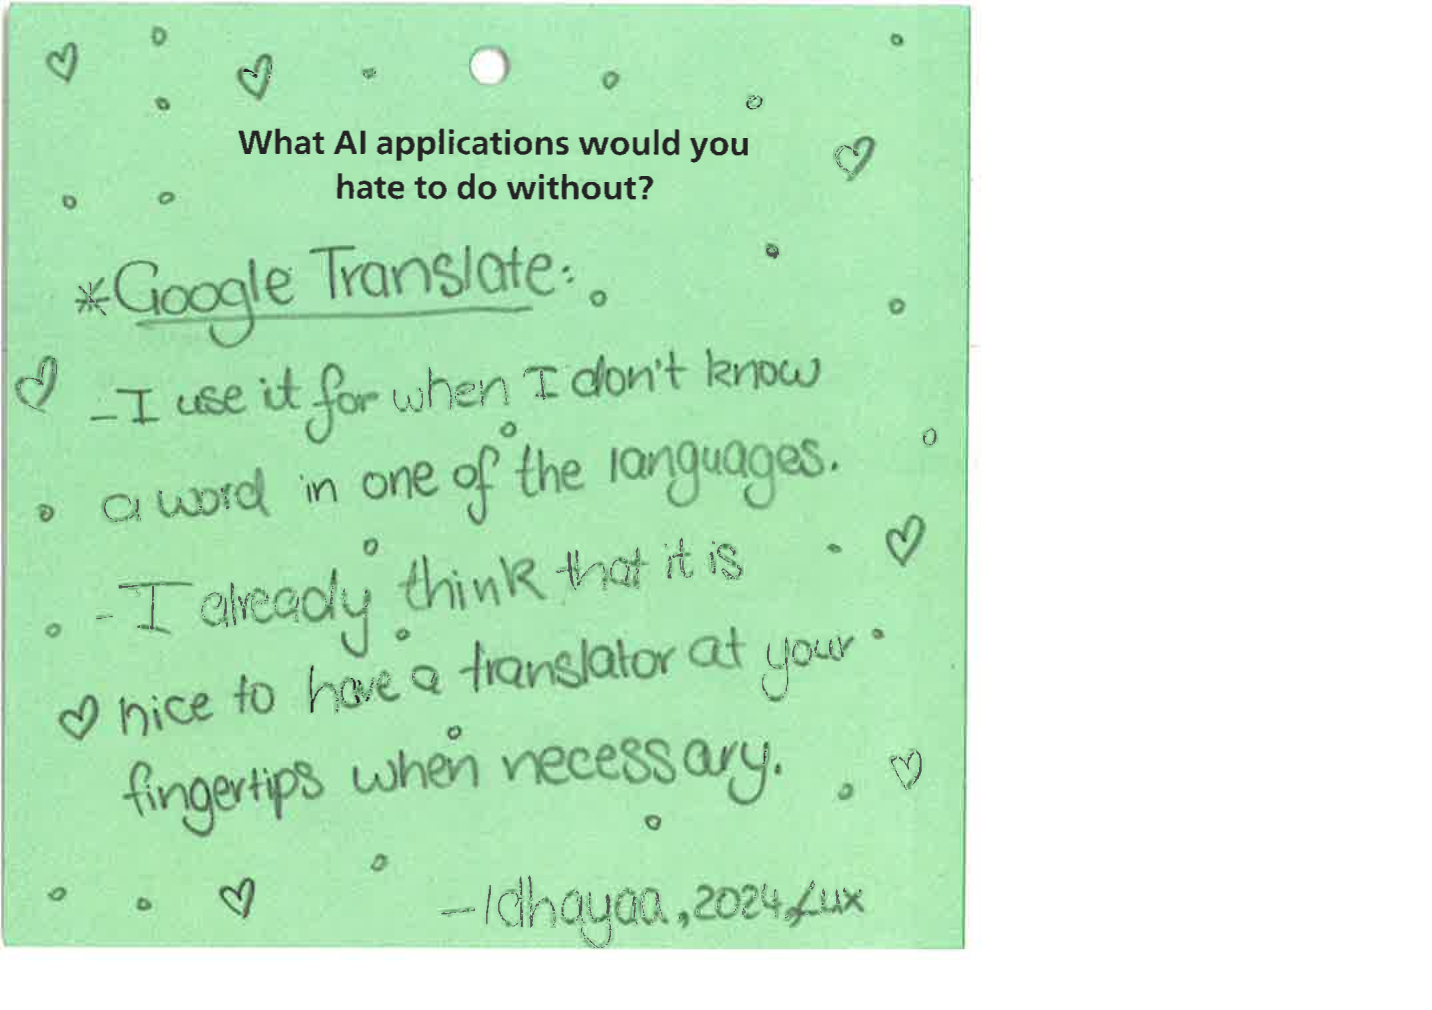 What AI applications would you
hate to do without?
*Google Translate:
-I use it for when I don't know
a word in one of the languages.
-I already think that it is
nice to have a translator at your
fingertips when necessary.
-Idhayaa, 2024, Lux